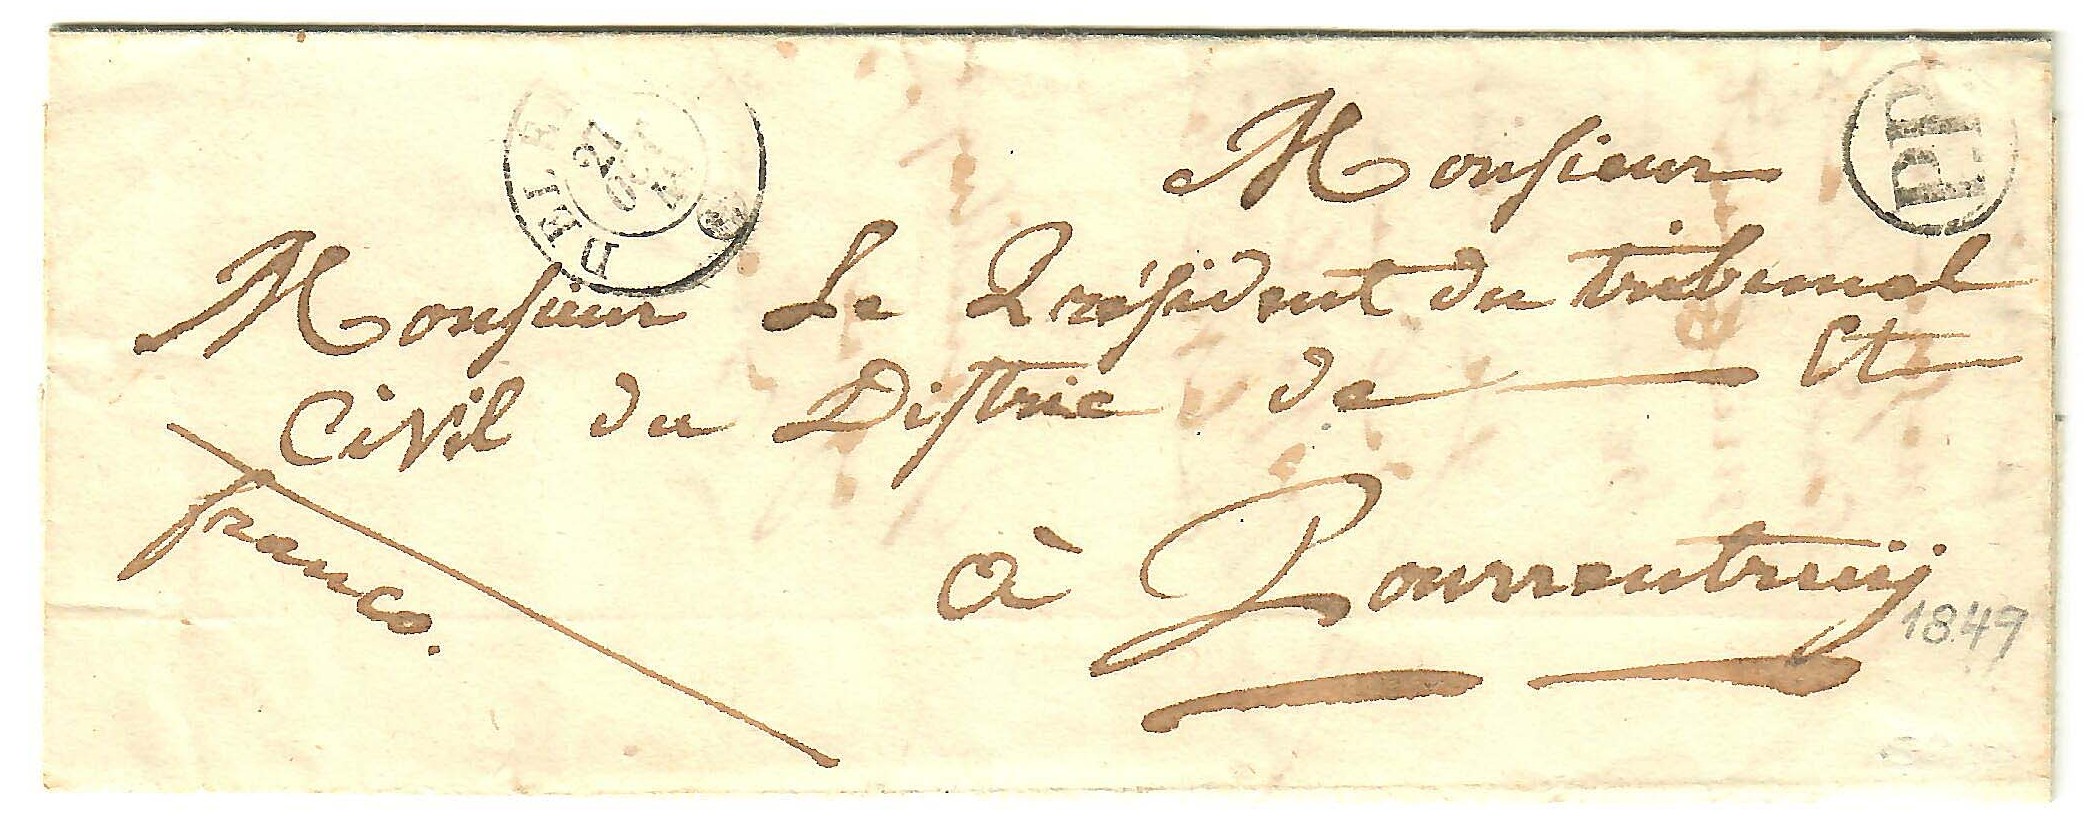 PP
Monsieur
Monsieur Le Président du tribunal
Civil du Distric de Et
franco.
à Pourrentruij
1847
DEL
27